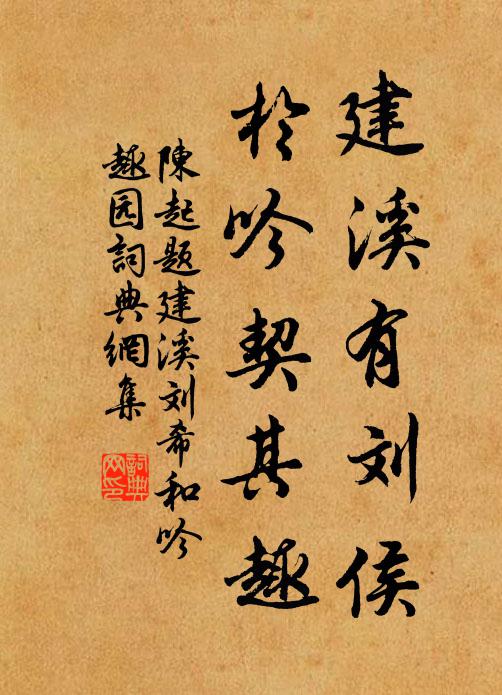 建溪有刘侯
於吟契其趣
陳起题建溪刘希和吟
趣园詞典網集
詞典网印